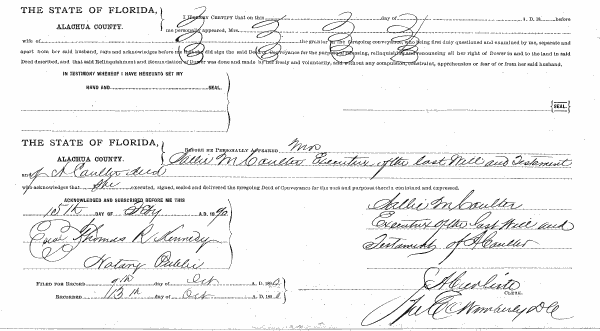 THE STATE OF FLORIDA,
ALACHUA COUNTY.
I HEREBY CERTIFY that on this day of A. D. 18 before
me personally appeared, Mrs.
wife of the grantor in the foregoing conveyance, who being first duly questioned and examined by me, separate and
apart from her said husband, says and acknowledges before me that she did sign the said Deed of Conveyance for the purpose of renouncing, relinquishing and renouncing all her right of Dower in and to the land in said
Deed described, and that said Relinquishment and Renunciation of Dower was done and made by her freely and voluntarily, and without any compulsion, constraint, apprehension or fear of or from her said husband,
IN TESTIMONY WHEREOF I HAVE HEREUNTO SET MY
HAND AND SEAL.
SEAL.
THE STATE OF FLORIDA,
ALACHUA COUNTY.
BEFORE ME PERSONALLY APPEARED Mrs
Sallie M Coulter Executrix of the last Will and Testament
of A Coulter decd
who acknowledges that She executed, signed, sealed and delivered the foregoing Deed of Conveyance for the uses and purposes therein contained and expressed.
ACKNOWLEDGED AND SUBSCRIBED BEFORE ME THIS
15th DAY OF A.D.
Thomas R Kennedy
Notary Public
Sallie M Coulter
Executrix of the last Will and
Testament of A Coulter
FILED FOR RECORD 9th day of Oct A. D. 18
RECORDED 13th day of Oct A. D. 18
CLERK.
Wimberly D C